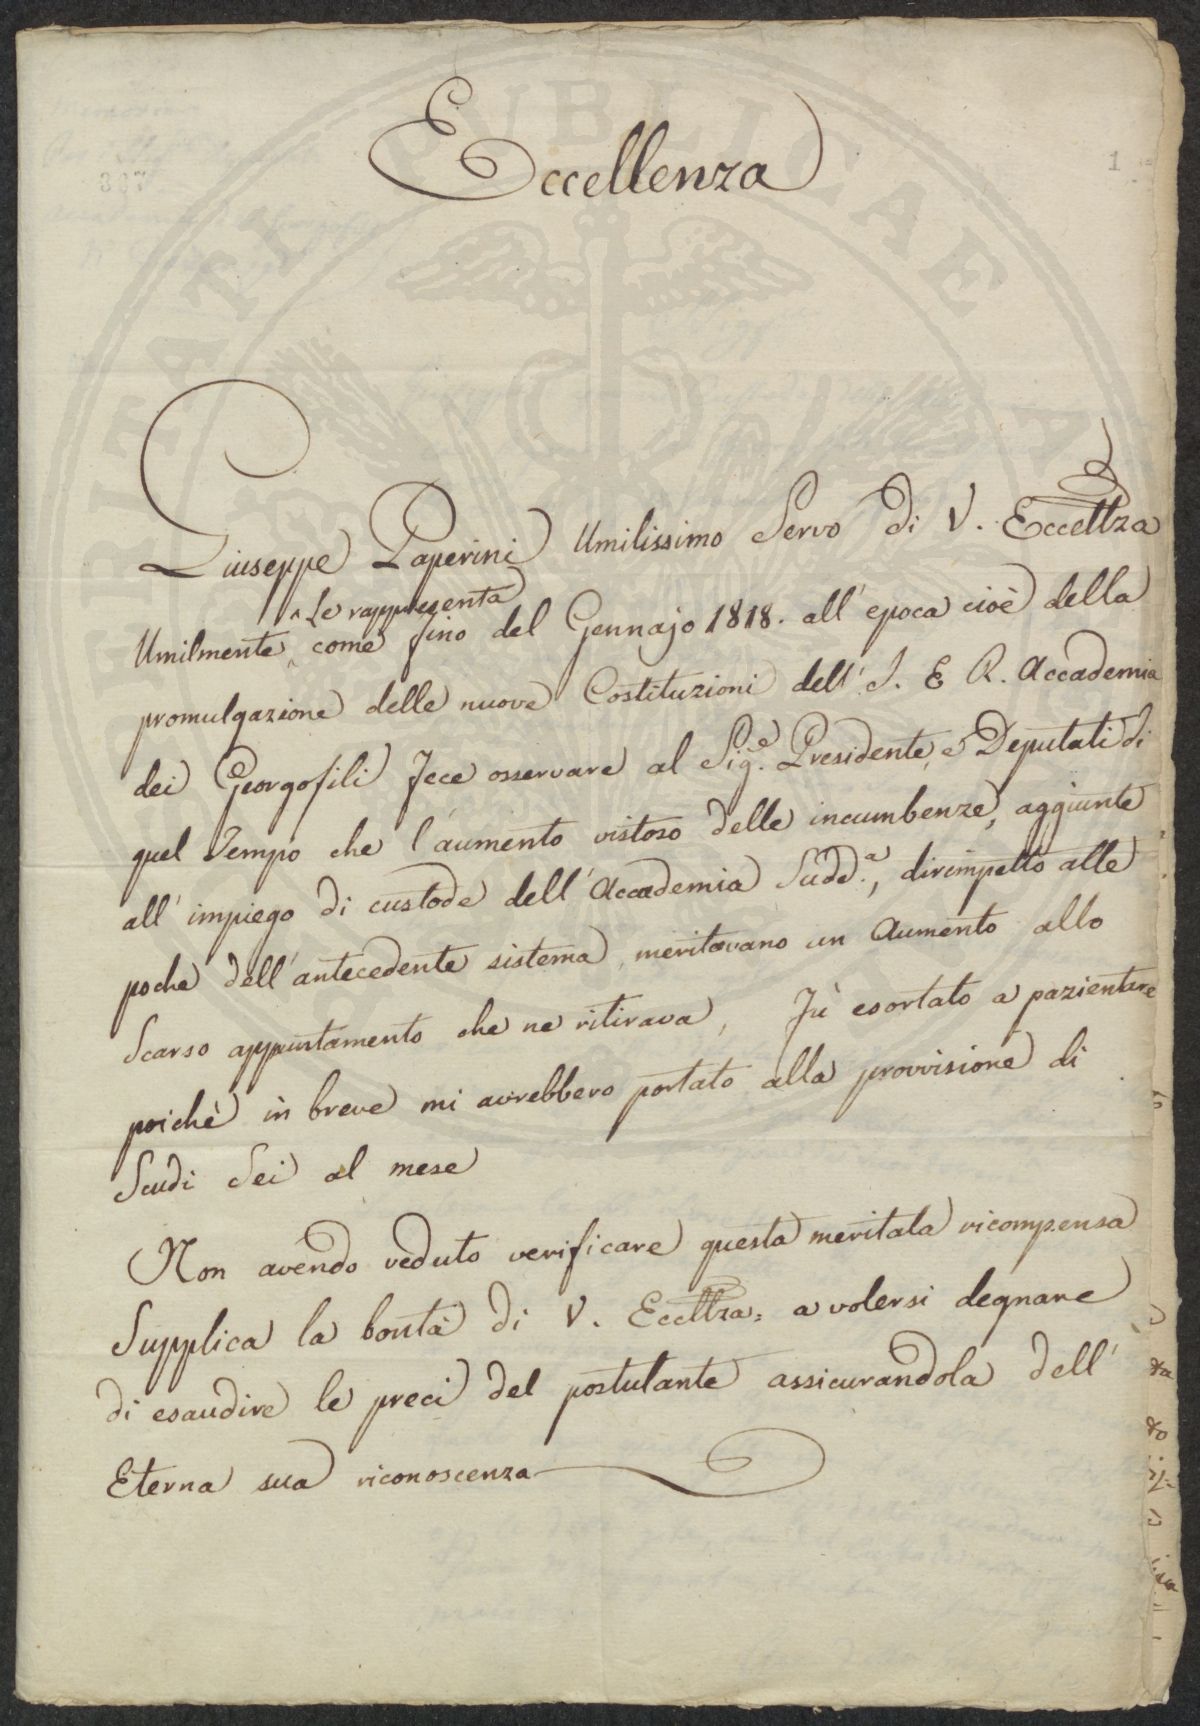 Eccellenza
1
307
Giuseppe Paperini Umilissimo Servo di V. Eccellza
Umilmente ^Le rappresenta come fino del Gennajo 1818. all' epoca cioè della
promulgazione delle nuove Costituzioni dell' I. E R. Accademia
dei Georgofili fece osservare al Sig.e Presidente, e Deputati di
quel Tempo che l'aumento vistoso delle incumbenze, aggiunte
all' impiego di custode dell' Accademia Sudd.a, dirimpetto alle
poche dell' antecedente sistema, meritavano un Aumento allo
Scarso appuntamento che ne ritirava, Fù esortato a pazientare
poichè in breve mi avrebbero portato alla provvisione di
Scudi Sei al mese
Non avendo veduto verificare questa meritata ricompensa
Supplica la bontà di V. Eccellza= a volersi degnare
di esaudire le preci del postulante assicurandola dell'
Eterna sua riconoscenza
PUBLICAE